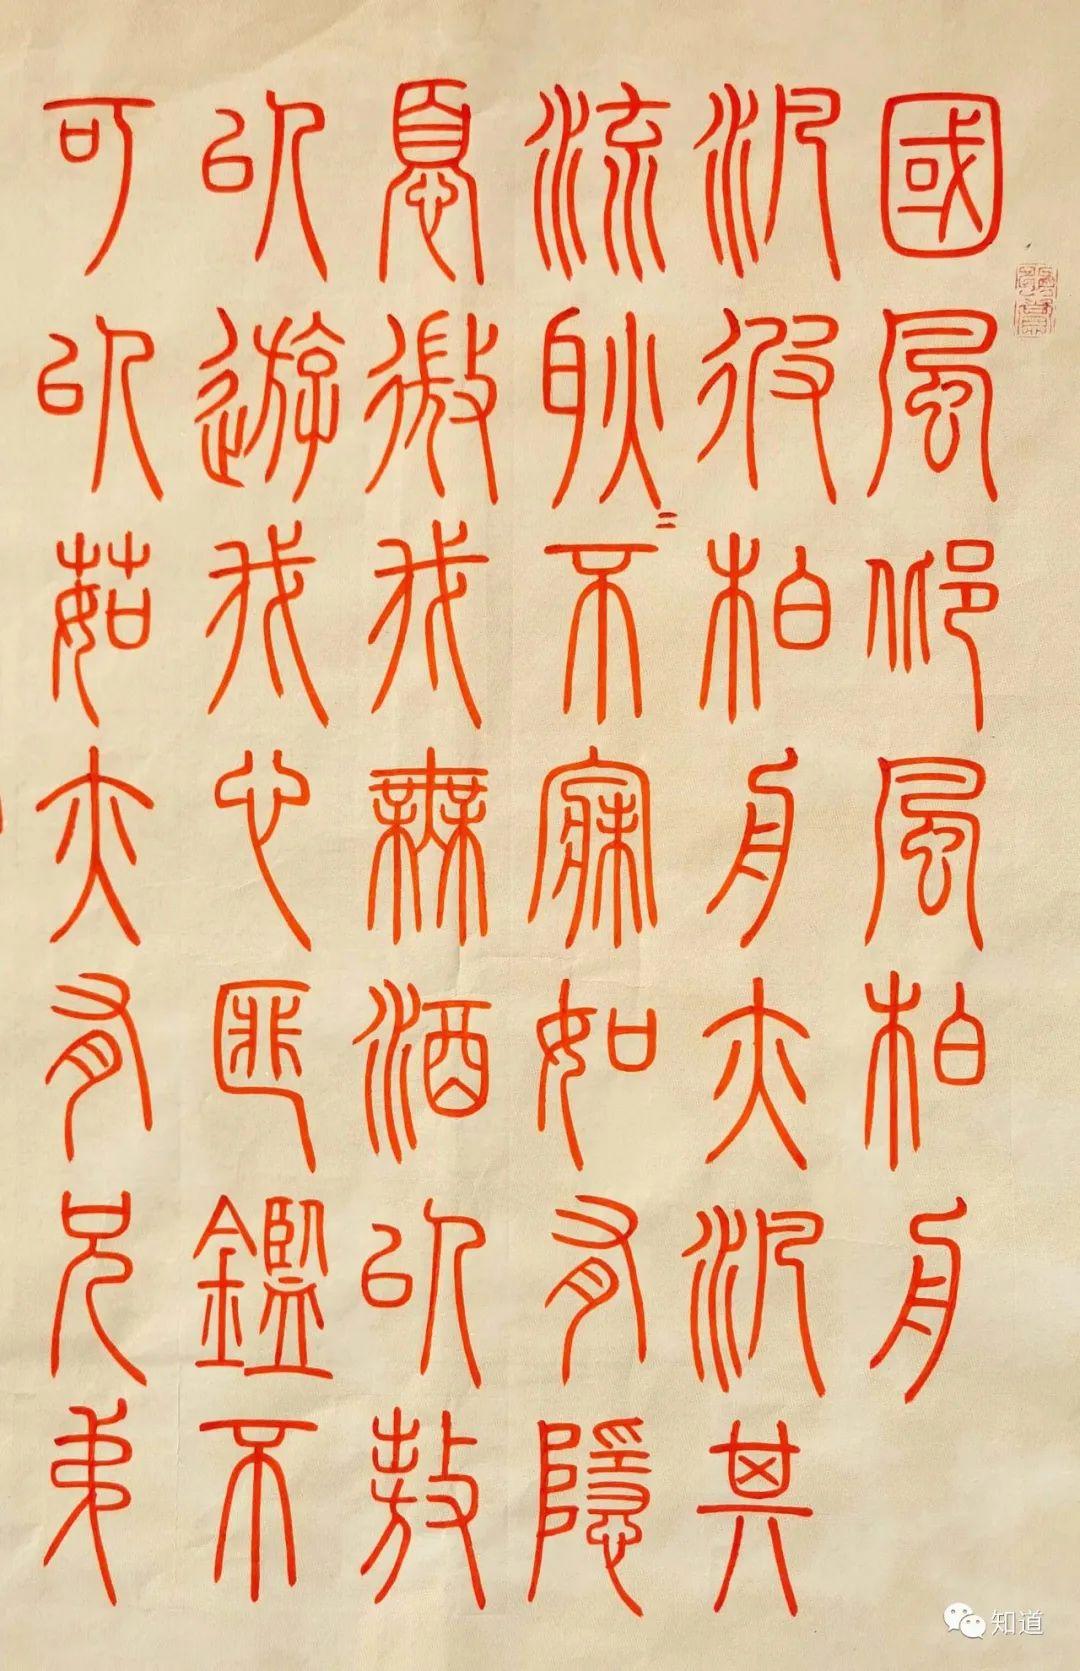 國風邶風柏舟
汎彼柏舟亦汎其
流耿〻不寐如有隱
憂微我無酒以敖
以遊我心匪鑑不
可以茹亦有兄弟
知道